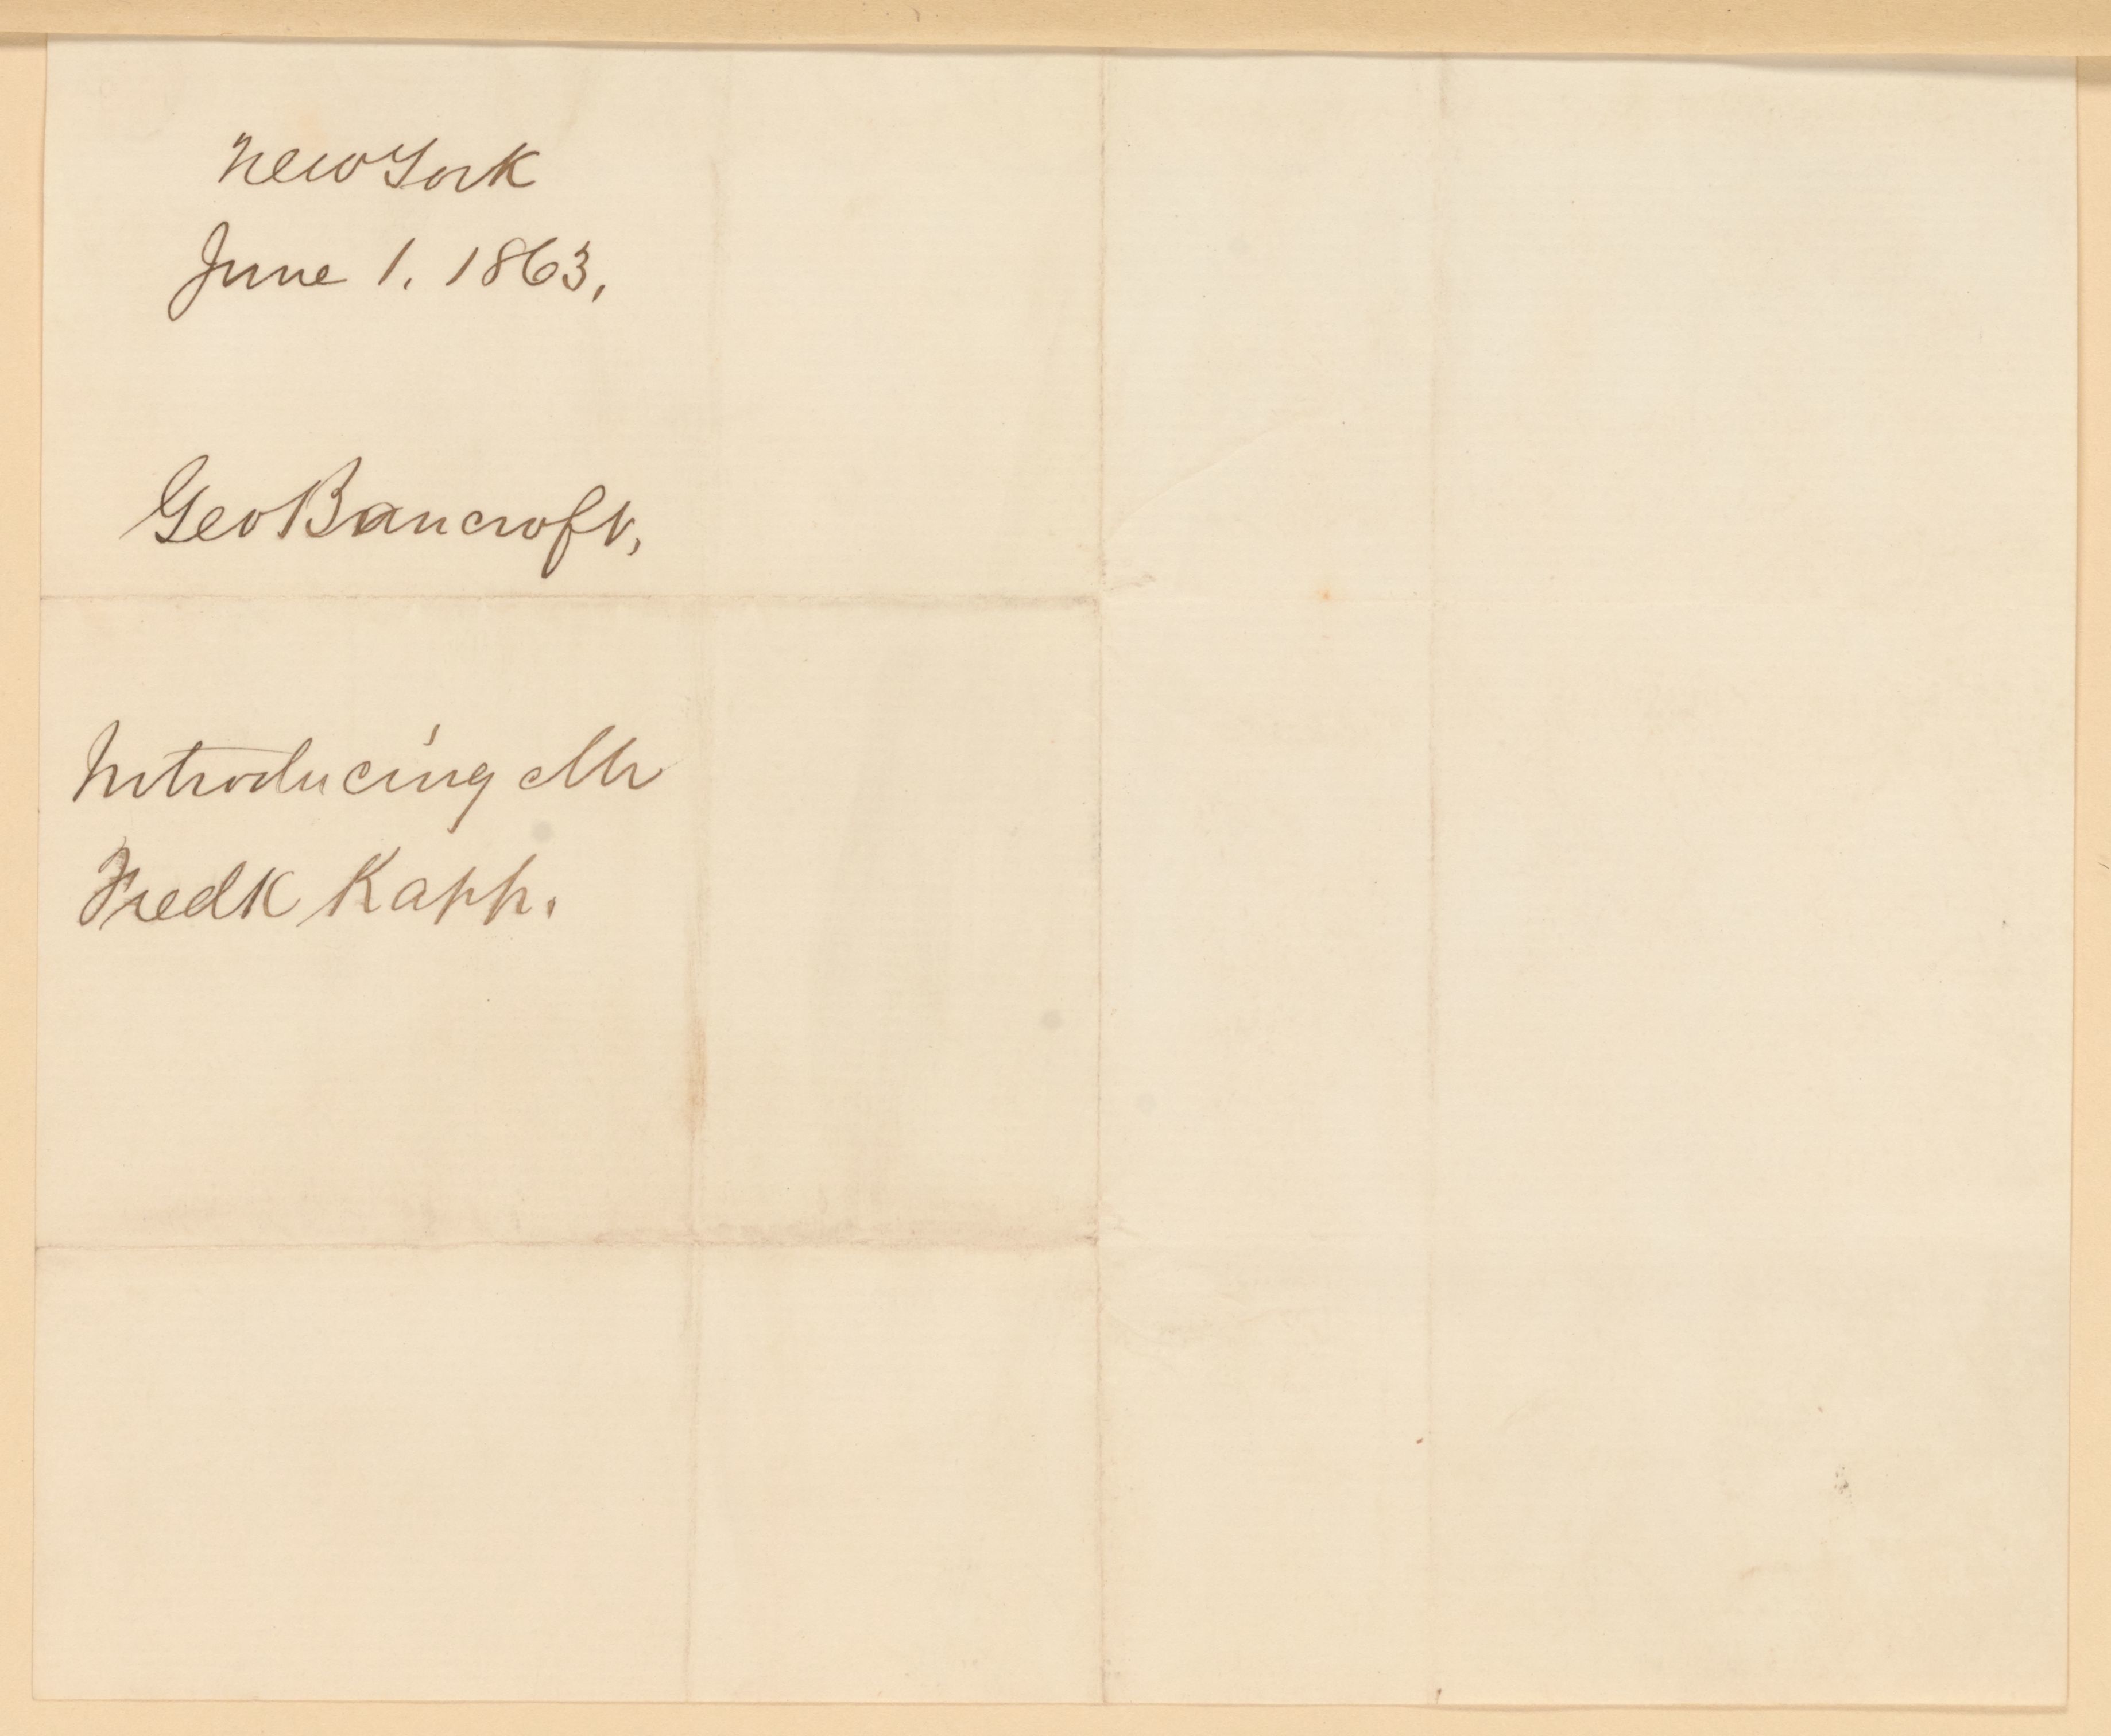 New York
June 1. 1863.
Geo Bancroft.
Introducing Mr
Fredk Kapp.